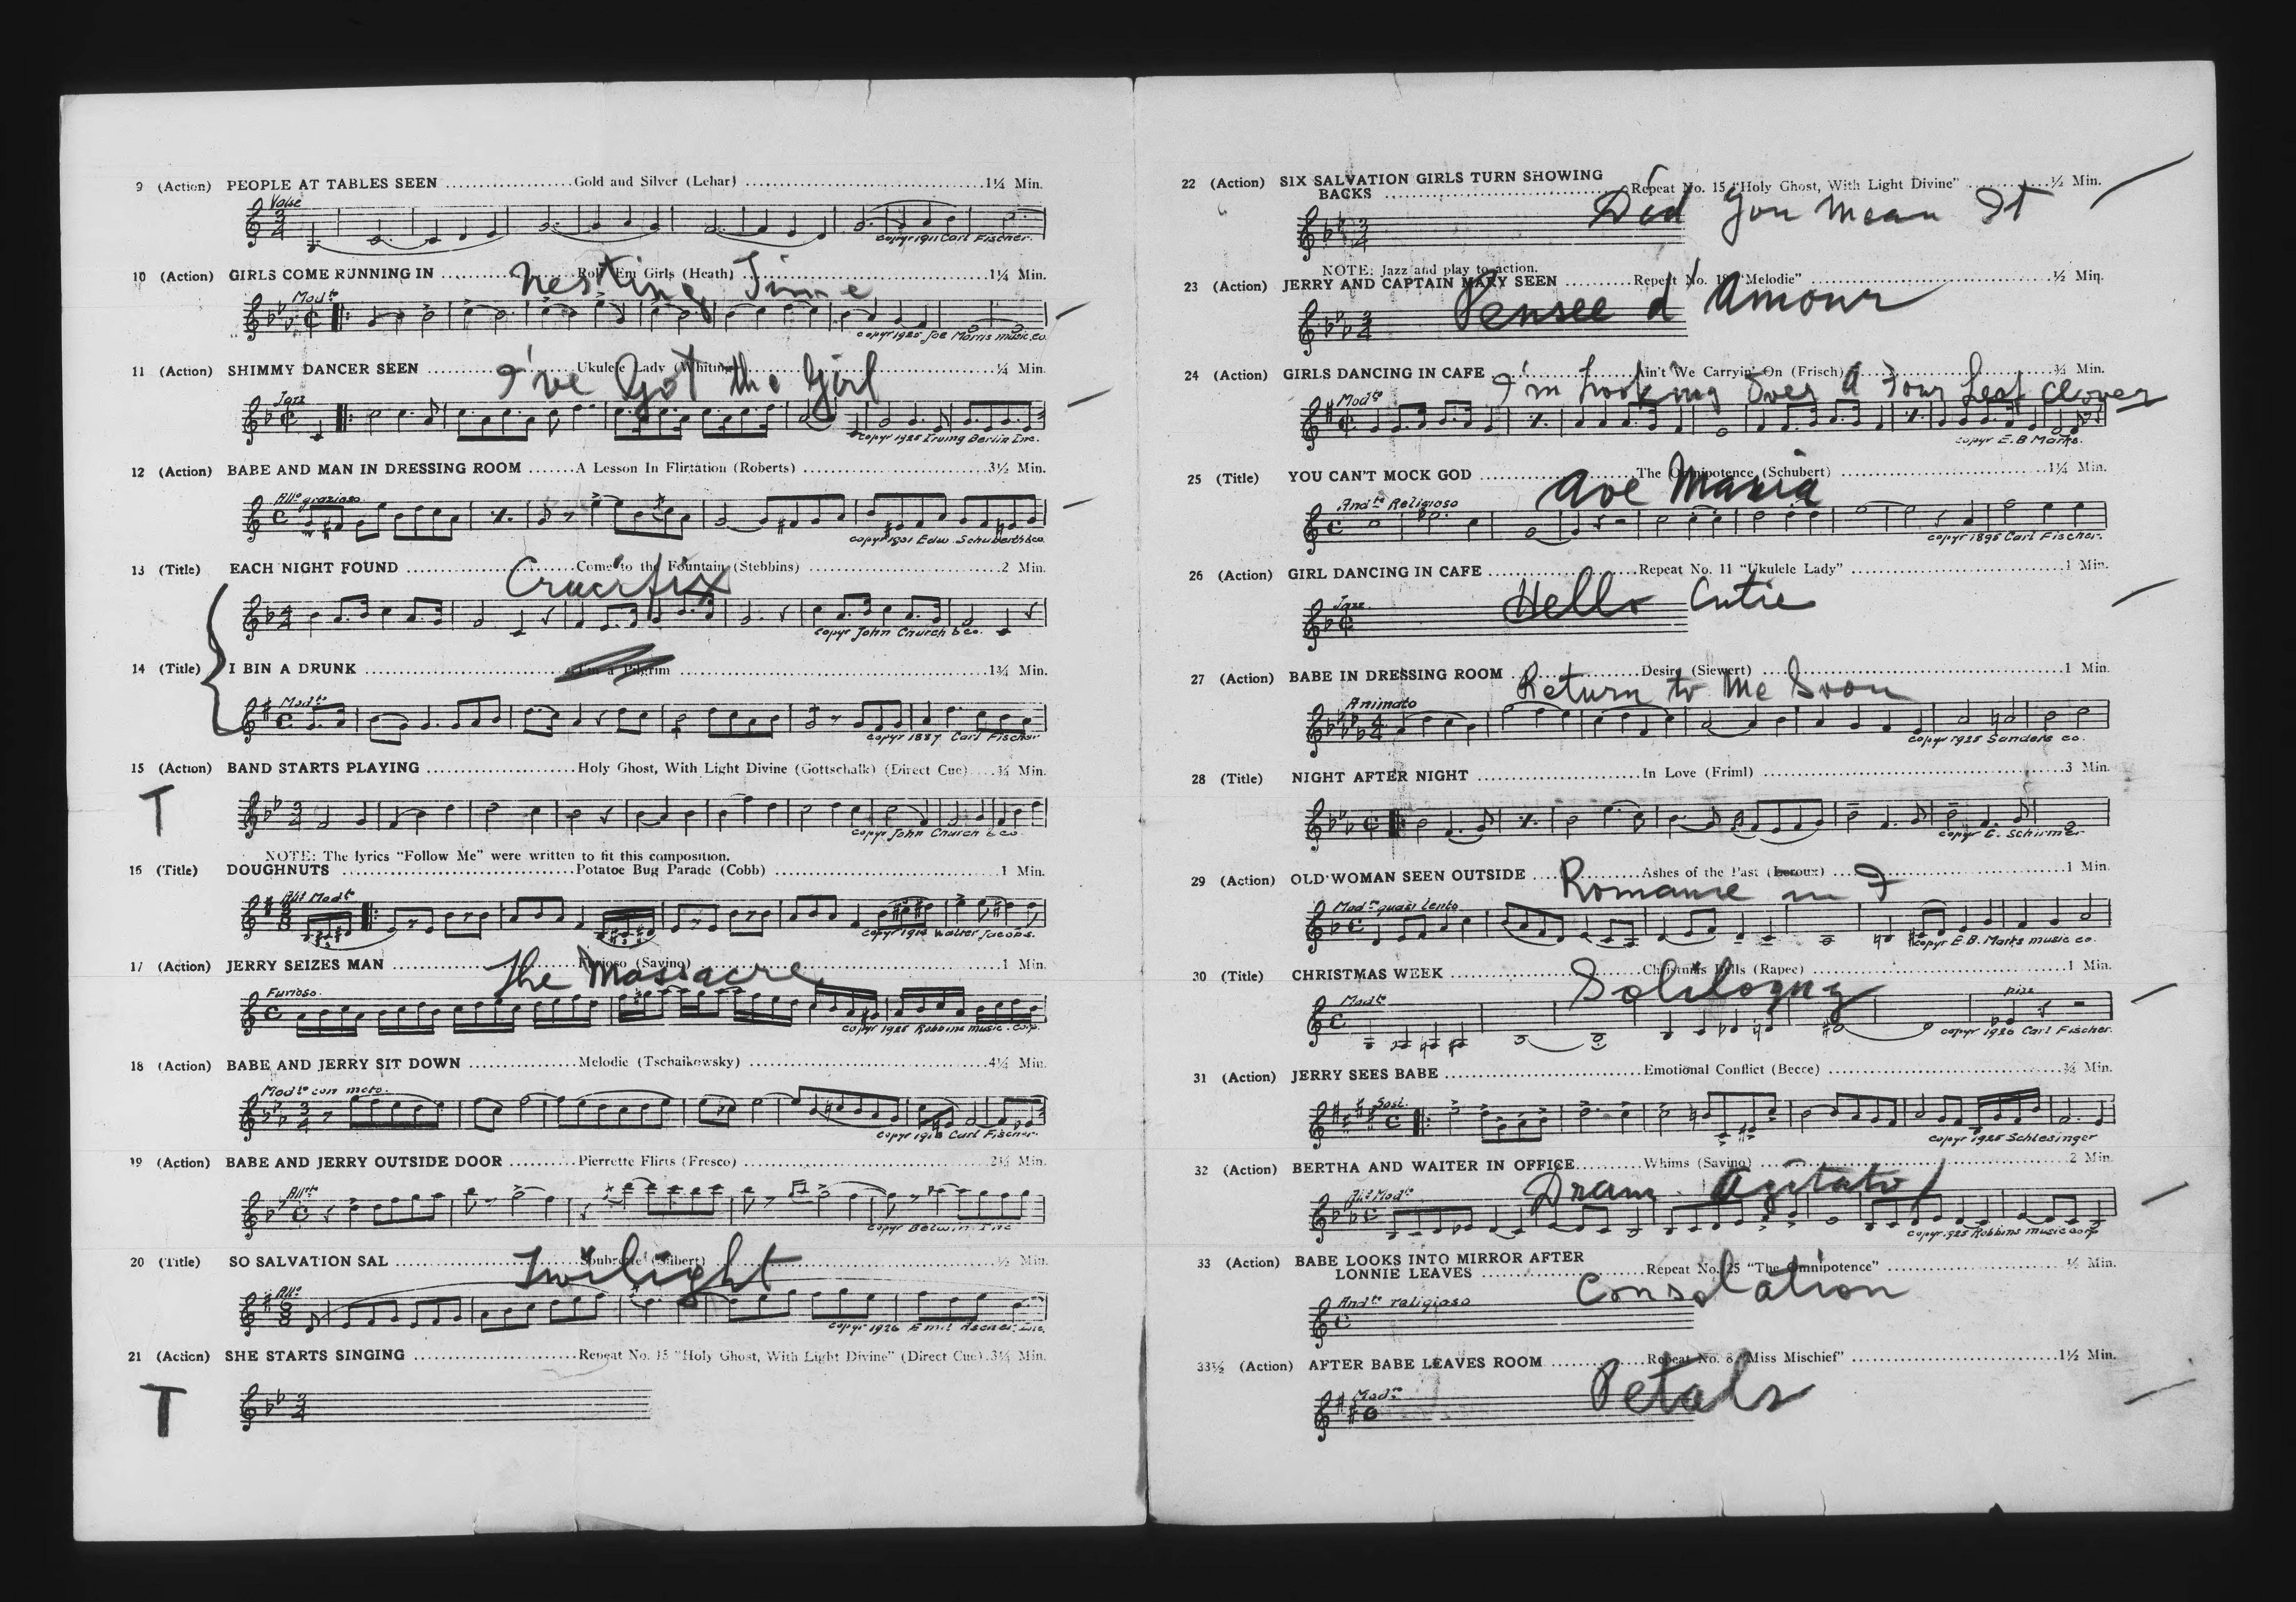 9 (Action) PEOPLE AT TABLES SEEN ....................Gold and Silver (Lehar) ......................................1¼ Min.
Valse
copyr 1911 Carl Fischer.
10 (Action) GIRLS COME RUNNING IN ....................Roll 'Em Girls (Heath) ......................................1¼ Min.
Nesting Time
Modto
copyr 1925 Joe Morris music co.
11 (Action) SHIMMY DANCER SEEN ....................Ukulele Lady (Whiting) ......................................¼ Min.
I've Got the Girl
Jazz
copyr 1925 Irving Berlin Inc.
12 (Action) BABE AND MAN IN DRESSING ROOM .......A Lesson In Flirtation (Roberts) ..............................3½ Min.
Allo grazioso
copyr 1901 Edw. Schuberth & co.
13 (Title) EACH NIGHT FOUND ..........................Come to the Fountain (Stebbins) ..............................2 Min.
Crucifix
copyr John Church & co.
14 (Title) I BIN A DRUNK ................................I'm a Pilgrim ..............................................1¾ Min.
Modto
copyr 1887 Carl Fischer
15 (Action) BAND STARTS PLAYING ......................Holy Ghost, With Light Divine (Gottschalk) (Direct Cue)....¾ Min.
T
copyr John Church & co.
NOTE: The lyrics "Follow Me" were written to fit this composition.
16 (Title) DOUGHNUTS ..................................Potatoe Bug Parade (Cobb) ..................................1 Min.
Allt Modto
copyr 1914 Walter Jacobs.
17 (Action) JERRY SEIZES MAN ............................Furioso (Savino) ............................................1 Min.
The Massacre
Furioso.
copyr 1925 Robbins music. corp.
18 (Action) BABE AND JERRY SIT DOWN ................Melodie (Tschaikowsky) ......................................4½ Min.
Modto con moto.
Carl Fischer.
19 (Action) BABE AND JERRY OUTSIDE DOOR ..........Pierrette Flirts (Fresco) ......................................2½ Min.
Alltto
copyr Belwin. Inc
20 (Title) SO SALVATION SAL ..........................Soubrette (Gilbert) ............................................½ Min.
Twilight
Allo
copyr 1926 Emil Ascher, Inc.
21 (Action) SHE STARTS SINGING ......................Repeat No. 15 "Holy Ghost, With Light Divine" (Direct Cue).3¼ Min.
T
22 (Action) SIX SALVATION GIRLS TURN SHOWING
BACKS ......................................Repeat No. 15 "Holy Ghost, With Light Divine" ............½ Min.
Did You Mean It
NOTE: Jazz and play to action.
23 (Action) JERRY AND CAPTAIN MARY SEEN ..........Repeat No. 18 "Melodie" ......................................½ Min.
Pensee d'Amour
24 (Action) GIRLS DANCING IN CAFE ......................Ain't We Carryin' On (Frisch) ..............................¾ Min.
I'm Looking Over A Four Leaf Clover
Modto
copyr E. B Marks.
25 (Title) YOU CAN'T MOCK GOD ........................The Omnipotence (Schubert) ................................1¼ Min.
Ave Maria
Andte Religioso
copyr 1895 Carl Fischer.
26 (Action) GIRL DANCING IN CAFE ......................Repeat No. 11 "Ukulele Lady" ................................1 Min.
Hello Cutie
Jazz
27 (Action) BABE IN DRESSING ROOM ..................Desire (Siewert) ..............................................1 Min.
Return to Me Soon
Animato
copyr 1925 Sanders co.
28 (Title) NIGHT AFTER NIGHT ........................In Love (Friml) ................................................3 Min.
copyr G. Schirmer
29 (Action) OLD WOMAN SEEN OUTSIDE ................Ashes of the Past (Leroux) ....................................1 Min.
Romance in F
Modto quasi lento
copyr E. B. Marks music co.
30 (Title) CHRISTMAS WEEK ............................Christmas Bells (Rapee) ......................................1 Min.
Soliloquy
Modto
copyr 1920 Carl Fischer.
31 (Action) JERRY SEES BABE ............................Emotional Conflict (Becce) ....................................¾ Min.
Sost.
copyr 1925 Schlesinger
32 (Action) BERTHA AND WAITER IN OFFICE..........Whims (Savino) ..............................................2 Min.
Dram. Agitato
Allt Modto
copyr. 1925 Robbins music corp
33 (Action) BABE LOOKS INTO MIRROR AFTER
LONNIE LEAVES ..........................Repeat No. 25 "The Omnipotence" ............................½ Min.
Consolation
Andte religioso
33½ (Action) AFTER BABE LEAVES ROOM ..............Repeat No. 8 "Miss Mischief" ................................1½ Min.
Petals
Modto